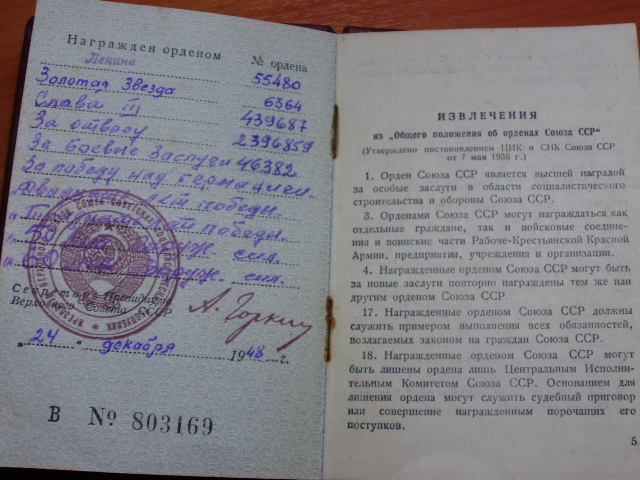 Награжден орденом
№ ордена
Ленина 55480
Золотая Звезда 6364
Слава III 439687
За отвагу 2396859
За боевые заслуги 46382
За победу над Германией.
Двадцать лет победы.
Тридцать лет победы.
50 лет Вооруж. сил.
60 лет Вооруж. сил.
Секретарь Президиума
Верховного Совета СССР
А. Горкин
"24" декабря 1948 г.
В № 803169
ИЗВЛЕЧЕНИЯ
из „Общего положения об орденах Союза ССР“
(Утверждено постановлением ЦИК и СНК Союза ССР
от 7 мая 1936 г.)
1. Орден Союза ССР является высшей наградой
за особые заслуги в области социалистического
строительства и обороны Союза ССР.
3. Орденами Союза ССР могут награждаться как
отдельные граждане, так и войсковые соедине-
ния и воинские части Рабоче-Крестьянской Красной
Армии, предприятия, учреждения и организации.
4. Награжденные орденом Союза ССР могут быть
за новые заслуги повторно награждены тем же или
другим орденом Союза ССР.
17. Награжденные орденом Союза ССР должны
служить примером выполнения всех обязанностей,
возлагаемых законом на граждан Союза ССР.
18. Награжденные орденом Союза ССР могут
быть лишены ордена лишь Центральным Исполни-
тельным Комитетом Союза ССР. Основанием для
лишения ордена могут служить судебный приговор
или совершение награжденным порочащих его
поступков.
5